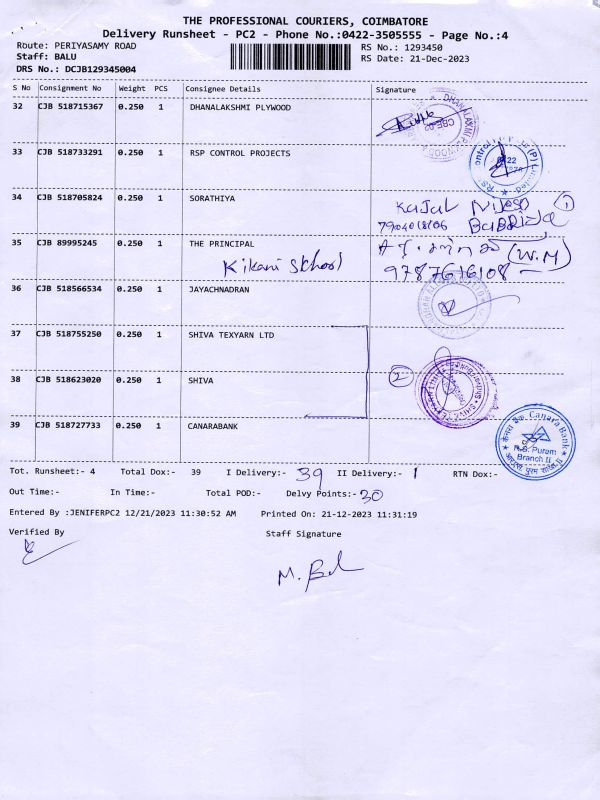 THE PROFESSIONAL COURIERS, COIMBATORE
Delivery Runsheet - PC2 - Phone No.:0422-3505555 - Page No.:4
Route: PERIYASAMY ROAD RS No.: 1293450
Staff: BALU RS Date: 21-Dec-2023
DRS No.: DCJB129345004
S No Consignment No Weight PCS Consignee Details Signature
32 CJB 518715367 0.250 1 DHANALAKSHMI PLYWOOD
33 CJB 518733291 0.250 1 RSP CONTROL PROJECTS
34 CJB 518705824 0.250 1 SORATHIYA Kajal
35 CJB 89995245 0.250 1 THE PRINCIPAL (W.M)
Kikani School 9787616108
36 CJB 518566534 0.250 1 JAYACHNADRAN
37 CJB 518755250 0.250 1 SHIVA TEXYARN LTD
38 CJB 518623020 0.250 1 SHIVA 2
39 CJB 518727733 0.250 1 CANARABANK
केनरा बैंक Canara Bank
R.S. Puram
Branch II
Tot. Runsheet:- 4 Total Dox:- 39 I Delivery:- 39 II Delivery:- 1 RTN Dox:-
Out Time:- In Time:- Total POD:- Delvy Points:- 30
Entered By :JENIFERPC2 12/21/2023 11:30:52 AM Printed On: 21-12-2023 11:31:19
Verified By Staff Signature